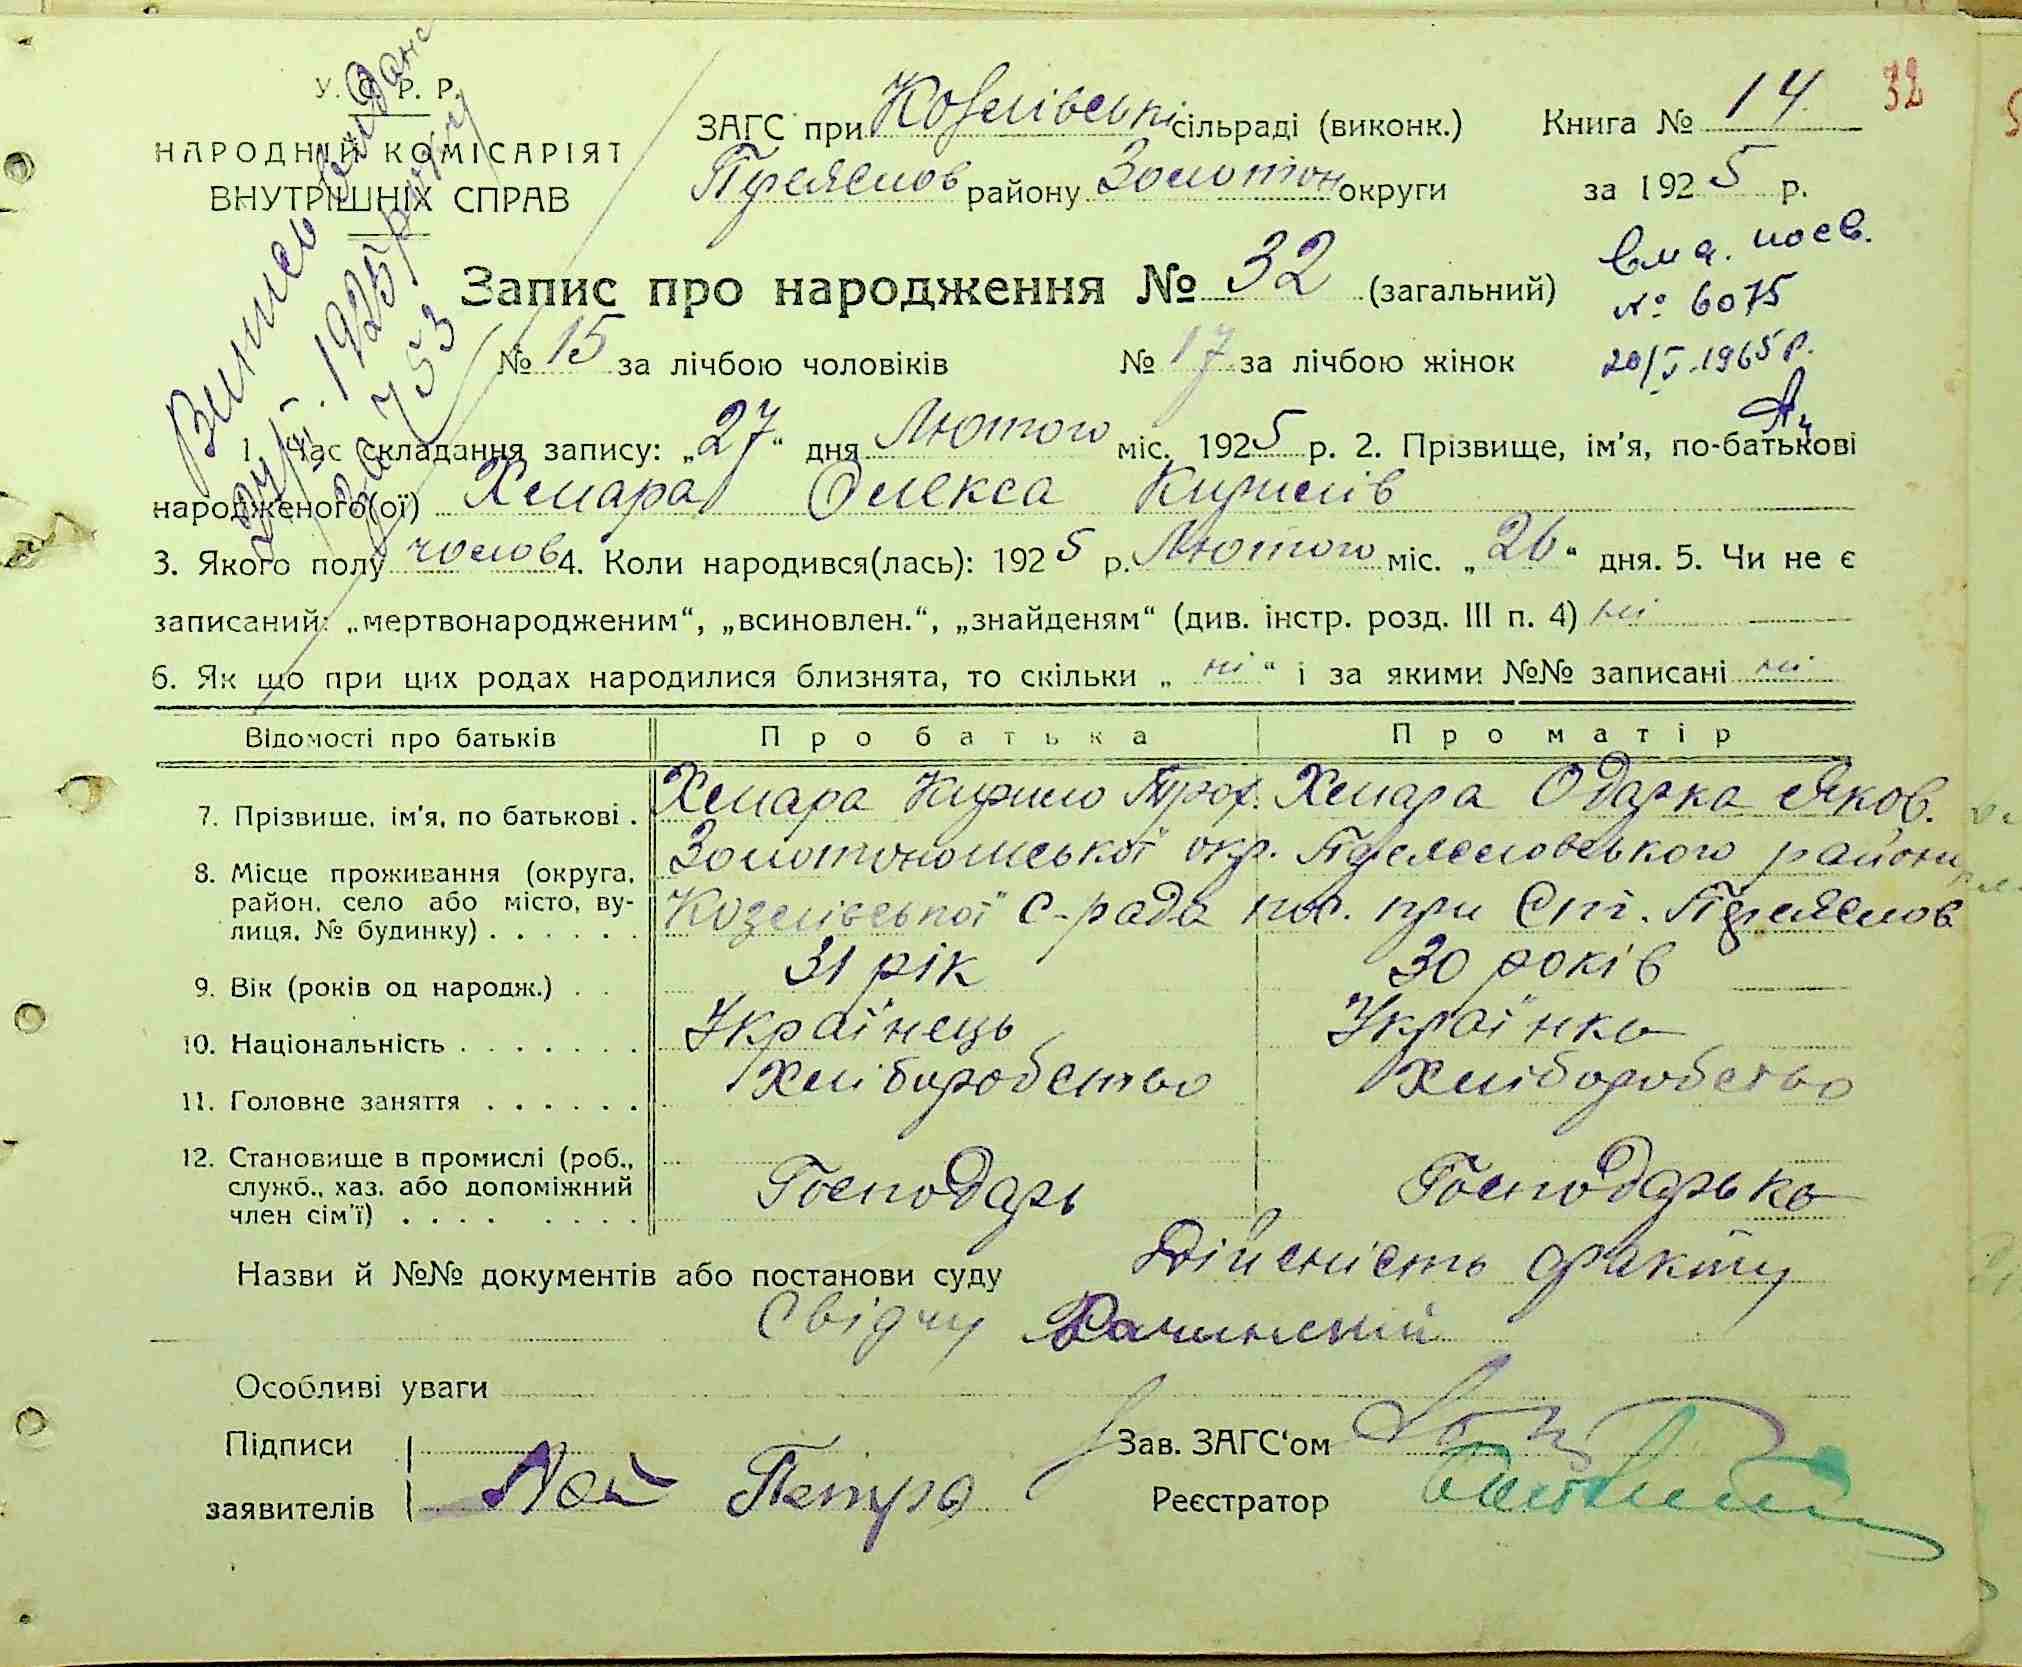 У. С. Р. Р.
НАРОДНІЙ КОМІСАРІЯТ
ВНУТРІШНІХ СПРАВ
ЗАГС при Козлівські сільраді (виконк.)
Переяслов району Золотон округи
Книга № 14
32
за 1925 р.
Запис про народження № 32 (загальний)
№ 6075
20/V.1965 р.
Випись видано
1925 року
за № 753
№ 15 за лічбою чоловіків № 17 за лічбою жінок
1. Час складання запису: „27“ дня Лютого міс. 1925 р. 2. Прізвище, ім'я, по-батькові
народженого(ої) Хмара Олекса Кирилів
3. Якого полу чолов 4. Коли народився(лась): 1925 р. Лютого міс. „26“ дня. 5. Чи не є
записаний: „мертвонародженим“, „всиновлен.“, „знайденям“ (див. інстр. розд. III п. 4) ні
6. Як що при цих родах народилися близнята, то скільки „ні“ і за якими №№ записані ні
Відомості про батьків Про батька Про матір
7. Прізвище, ім'я, по батькові . Хмара Кирило Троф. Хмара Одарка Яков.
8. Місце проживання (округа, район, село або місто, вулиця, № будинку) . . . . . . Золотоношської окр. Переясловського району
Козлівської с-рада пос. при Ст. Переяслов
9. Вік (років од народж.) . . 31 рік 30 років
10. Національність . . . . . . . Українець Українка
11. Головне заняття . . . . . . Хліборобство Хліборобство
12. Становище в промислі (роб., служб., хаз. або допоміжний член сім'ї) . . . . . . . . Господарь Господарька
Назви й №№ документів або постанови суду Дійсність факту
Свідчу Рачинский
Особливі уваги
Підписи
заявителів Лой Петро
Зав. ЗАГС'ом
Реєстратор